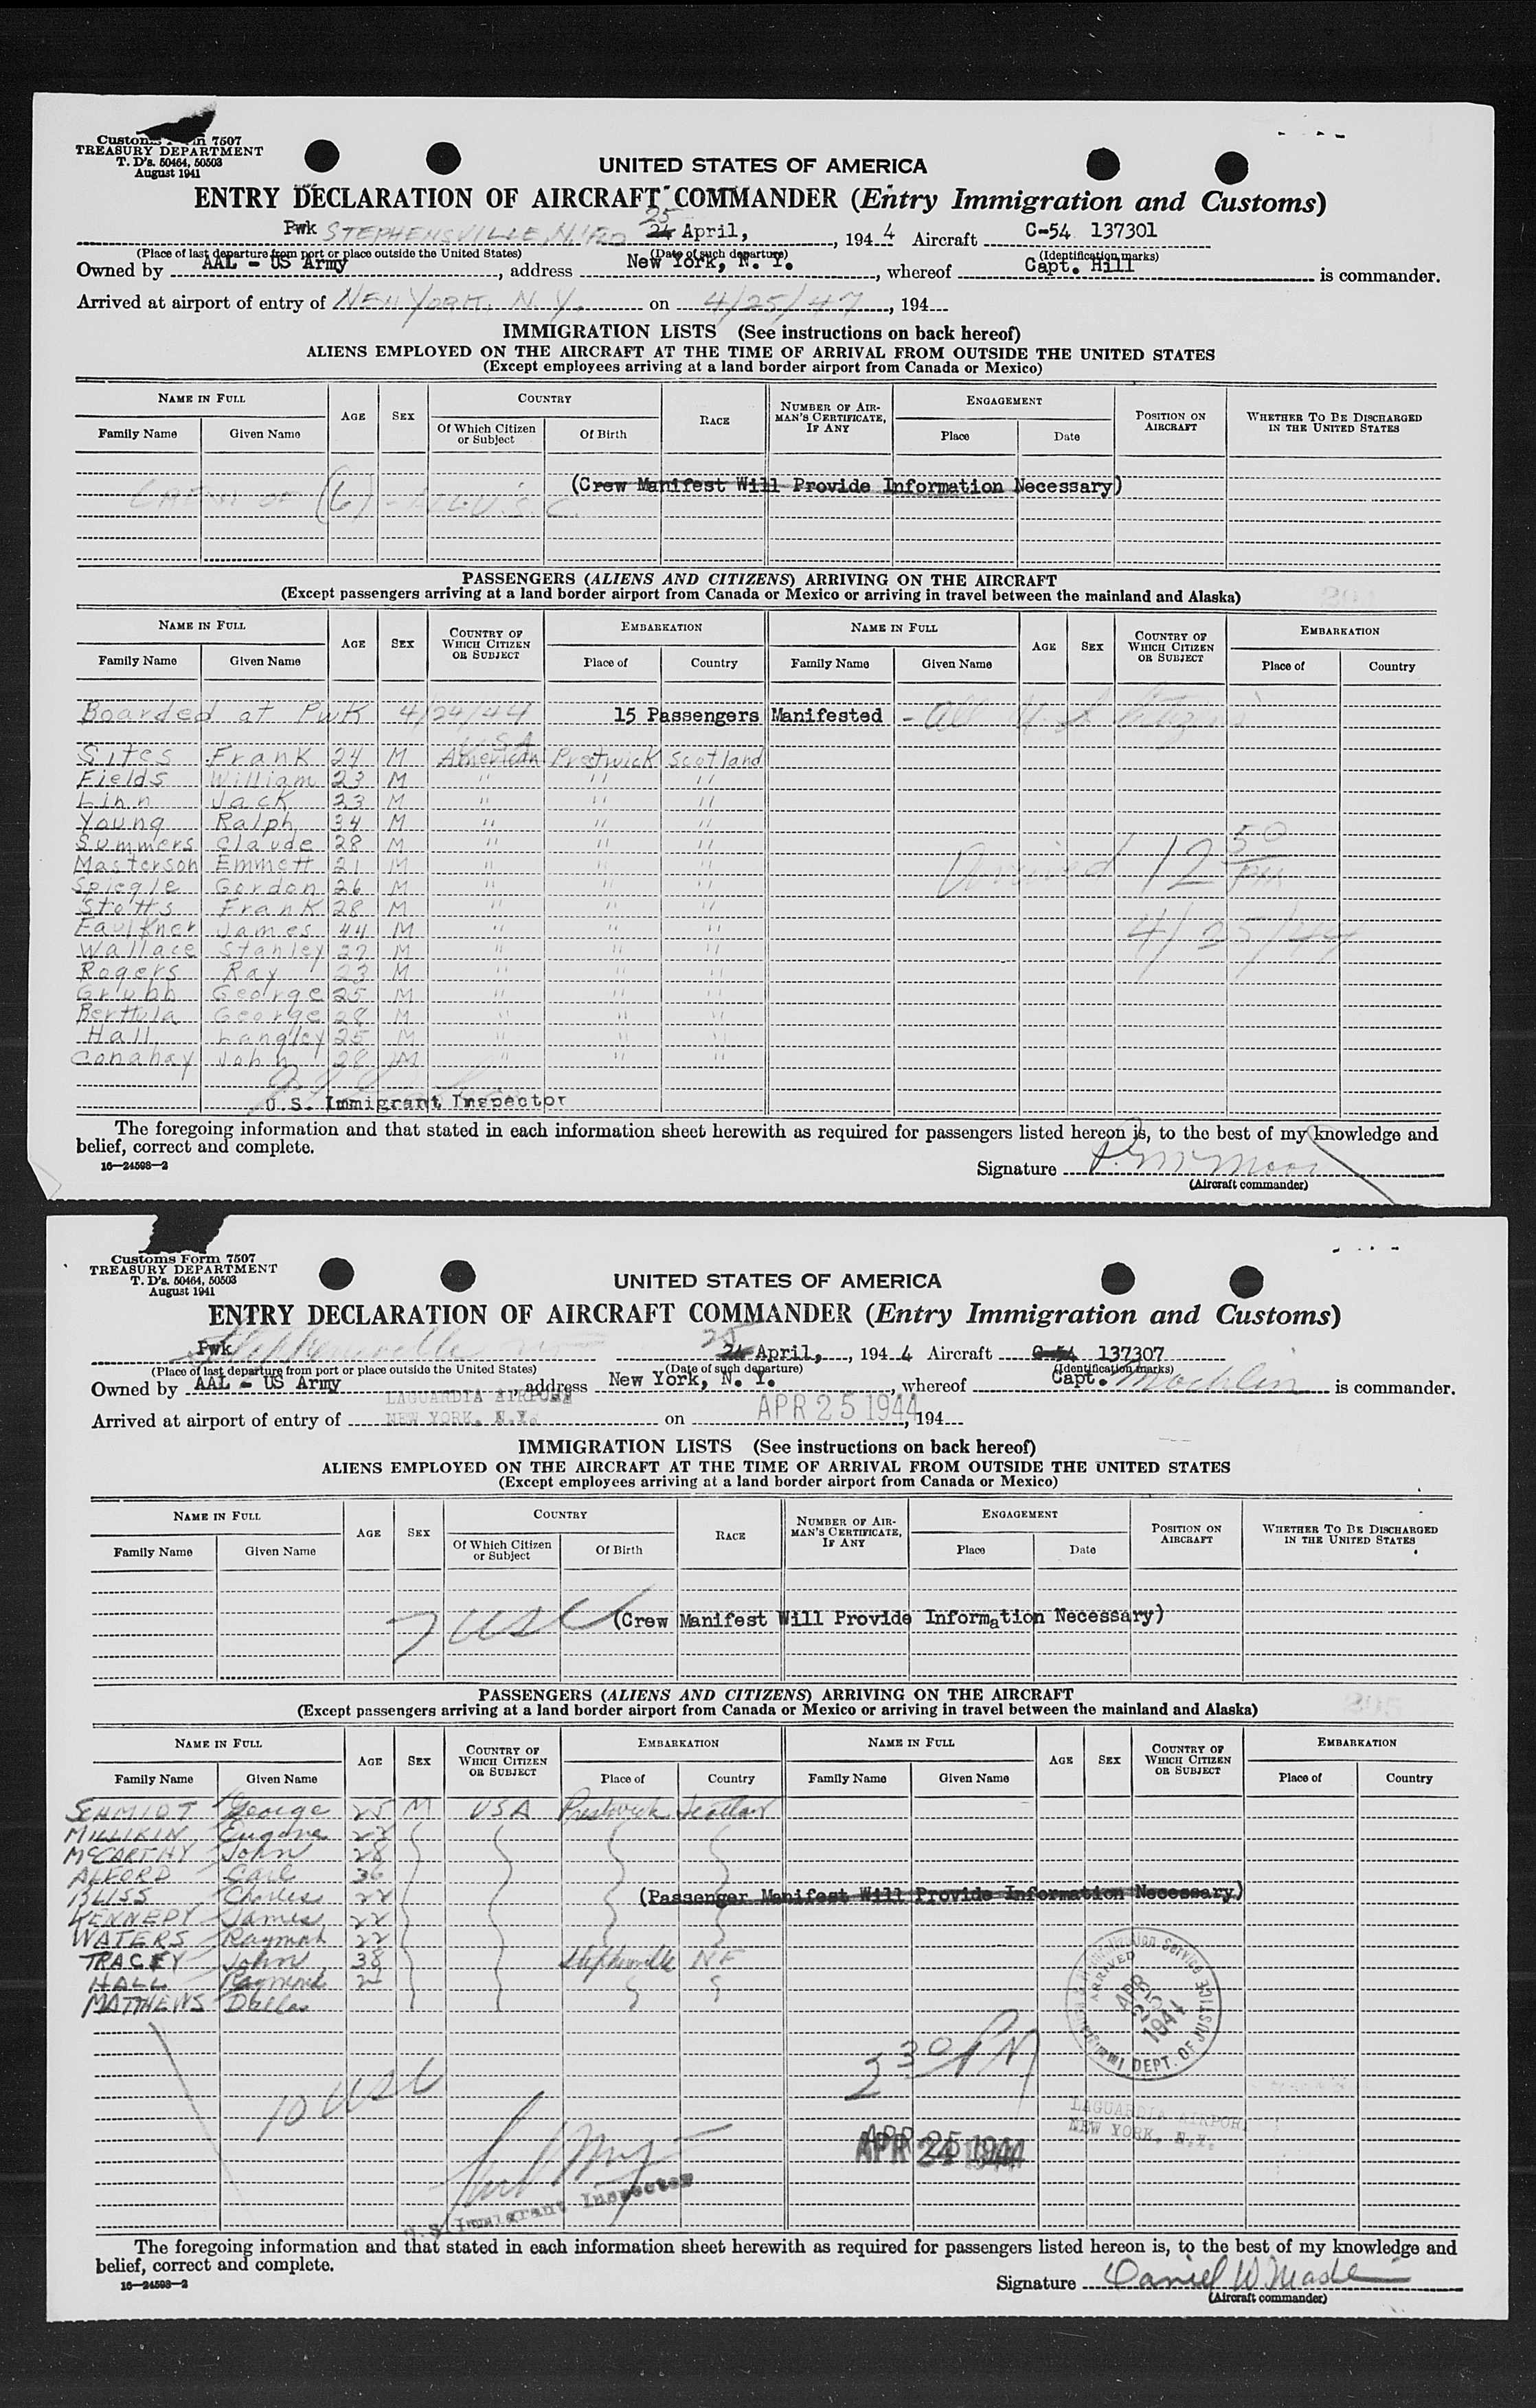 Customs Form 7507
TREASURY DEPARTMENT
T. D's. 50464, 50503
August 1941
UNITED STATES OF AMERICA
ENTRY DECLARATION OF AIRCRAFT COMMANDER (Entry Immigration and Customs)
Pwk STEPHENSVILLE, N'FLD 25 24 April, , 194 4 Aircraft C-54 137301
(Place of last departure from port or place outside the United States) (Date of such departure) (Identification marks)
Owned by AAL - US Army , address New York, N. Y. , whereof Capt. Hill is commander.
Arrived at airport of entry of NEW YORK, N.Y. on 4/25/47 , 194
IMMIGRATION LISTS (See instructions on back hereof)
ALIENS EMPLOYED ON THE AIRCRAFT AT THE TIME OF ARRIVAL FROM OUTSIDE THE UNITED STATES
(Except employees arriving at a land border airport from Canada or Mexico)
NAME IN FULL AGE SEX COUNTRY RACE NUMBER OF AIRMAN'S CERTIFICATE, IF ANY ENGAGEMENT POSITION ON AIRCRAFT WHETHER TO BE DISCHARGED IN THE UNITED STATES
Family Name Given Name Of Which Citizen or Subject Of Birth Place Date
(Crew Manifest Will Provide Information Necessary)
(6) - ALL U.S.C.
PASSENGERS (ALIENS AND CITIZENS) ARRIVING ON THE AIRCRAFT
(Except passengers arriving at a land border airport from Canada or Mexico or arriving in travel between the mainland and Alaska)
NAME IN FULL AGE SEX COUNTRY OF WHICH CITIZEN OR SUBJECT EMBARKATION NAME IN FULL AGE SEX COUNTRY OF WHICH CITIZEN OR SUBJECT EMBARKATION
Family Name Given Name Place of Country Family Name Given Name Place of Country
Boarded at PwK 4/24/44 15 Passengers Manifested - All U S Citizens
U.S.A
Sites Frank 24 M American Prestwick Scotland
Fields William 23 M " " "
Linn Jack 23 M " " "
Young Ralph 34 M " " "
Summers Claude 28 M " " "
Masterson Emmett 21 M " " "
Spiegle Gordon 26 M " " "
Stotts Frank 28 M " " "
Faulkner James 44 M " " "
Wallace Stanley 27 M " " "
Rogers Ray 23 M " " "
Grubb George 25 M " " "
Berttula George 28 M " " "
Hall Langley 25 M " " "
Conahay John 28 M " " "
Arrived 12 50 PM
4/25/44
U.S. Immigrant Inspector
The foregoing information and that stated in each information sheet herewith as required for passengers listed hereon is, to the best of my knowledge and
belief, correct and complete.
16-24598-2
Signature
(Aircraft commander)
Customs Form 7507
TREASURY DEPARTMENT
T. D's. 50464, 50503
August 1941
UNITED STATES OF AMERICA
ENTRY DECLARATION OF AIRCRAFT COMMANDER (Entry Immigration and Customs)
Pwk Stephenville 25 24 April, , 194 4 Aircraft C-54 137307
(Place of last departure from port or place outside the United States) (Date of such departure) (Identification marks)
Owned by AAL - US Army , address New York, N. Y. , whereof Capt. is commander.
LAGUARDIA AIRPORT
Arrived at airport of entry of NEW YORK, N.Y. on APR 25 1944 , 194
IMMIGRATION LISTS (See instructions on back hereof)
ALIENS EMPLOYED ON THE AIRCRAFT AT THE TIME OF ARRIVAL FROM OUTSIDE THE UNITED STATES
(Except employees arriving at a land border airport from Canada or Mexico)
NAME IN FULL AGE SEX COUNTRY RACE NUMBER OF AIRMAN'S CERTIFICATE, IF ANY ENGAGEMENT POSITION ON AIRCRAFT WHETHER TO BE DISCHARGED IN THE UNITED STATES
Family Name Given Name Of Which Citizen or Subject Of Birth Place Date
7 USC (Crew Manifest Will Provide Information Necessary)
PASSENGERS (ALIENS AND CITIZENS) ARRIVING ON THE AIRCRAFT
(Except passengers arriving at a land border airport from Canada or Mexico or arriving in travel between the mainland and Alaska)
NAME IN FULL AGE SEX COUNTRY OF WHICH CITIZEN OR SUBJECT EMBARKATION NAME IN FULL AGE SEX COUNTRY OF WHICH CITIZEN OR SUBJECT EMBARKATION
Family Name Given Name Place of Country Family Name Given Name Place of Country
SCHMIDT George 25 M USA Prestwick Scotland
MILLIKIN Eugene 22
McCARTHY John 28
ALFORD Carl 36
BLISS Charles 22
(Passenger Manifest Will Provide Information Necessary)
KENNEDY James 22
WATERS Raymond 22
TRACEY John 38 Stephenville NF
HALL Raymond
MATTHEWS Dallas
ARRIVED
APR 25 1944
DEPT. OF JUSTICE
3 30 PM
10 USC
LAGUARDIA AIRPORT
NEW YORK, N.Y.
APR 25 1944
APR 24 1944
U.S. Immigrant Inspector
The foregoing information and that stated in each information sheet herewith as required for passengers listed hereon is, to the best of my knowledge and
belief, correct and complete.
16-24598-2
Signature Daniel W
(Aircraft commander)